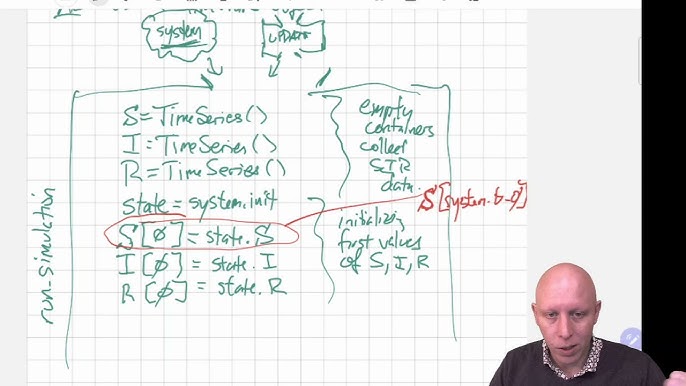 system
UPDATE
S=TimeSeries()
I=TimeSeries()
R=TimeSeries()
state=system.init
S[Ø]=state.S
I[Ø]=state.I
R[Ø]=state.R
run-simulation
empty
containers
collect
SIR
data.
initializing
first values
of S, I, R